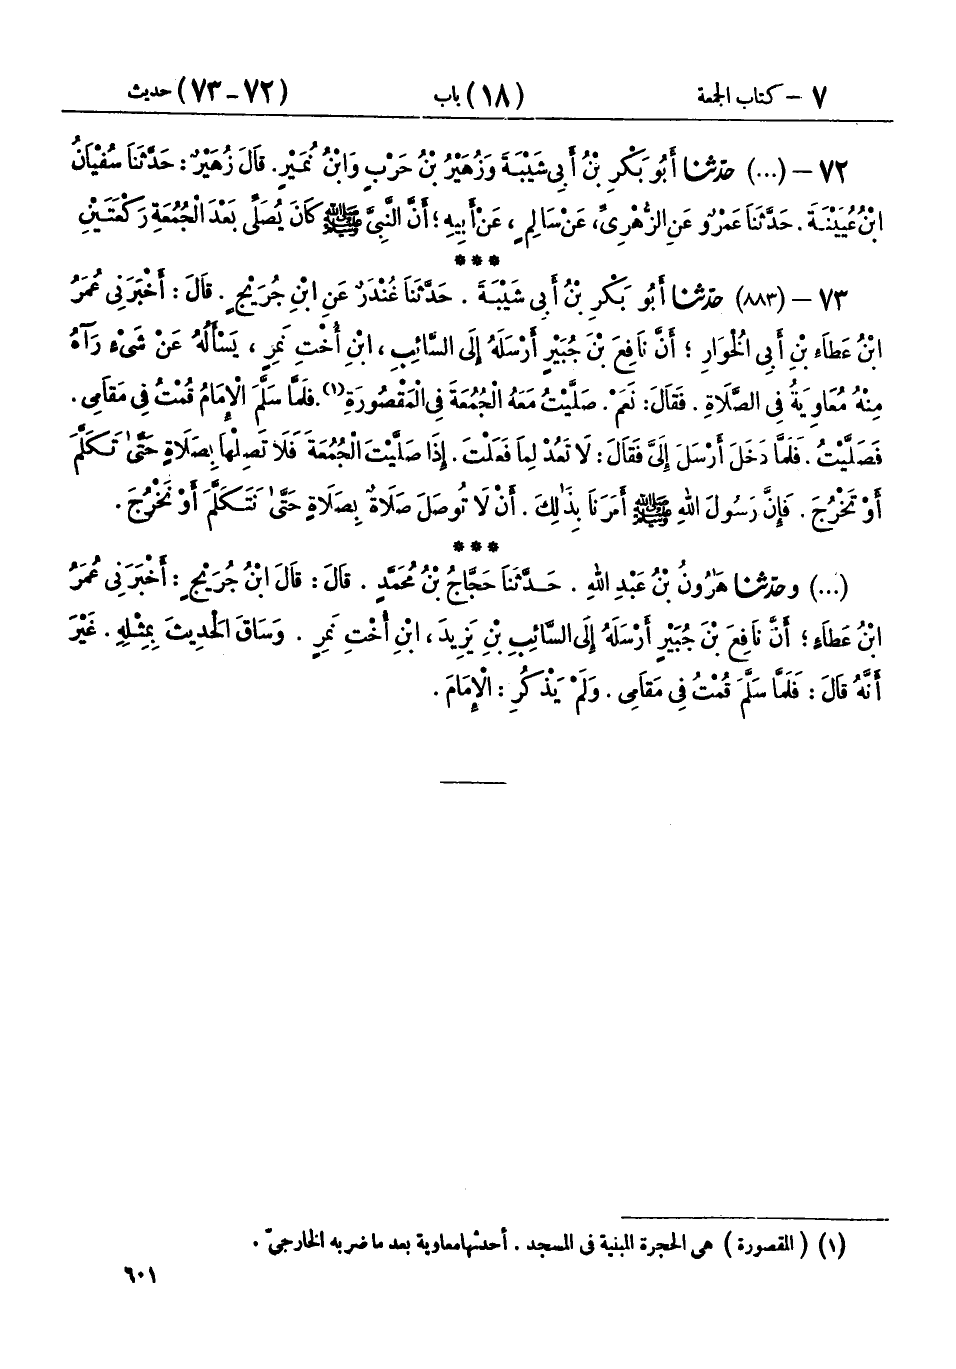 ٧ – كتاب الجمعة (١٨) باب (٧٢-٧٣) حديث
٧٢ – (...) حَدَّثَنَا أَبُو بَكْرِ بْنُ أَبِي شَيْبَةَ وَزُهَيْرُ بْنُ حَرْبٍ وَابْنُ نُمَيْرٍ. قَالَ زُهَيْرٌ: حَدَّثَنَا سُفْيَانُ
ابْنُ عُيَيْنَةَ. حَدَّثَنَا عَمْرٌو عَنِ الزُّهْرِيِّ، عَنْ سَالِمٍ، عَنْ أَبِيهِ؛ أَنَّ النَّبِيَّ ﷺ كَانَ يُصَلِّي بَعْدَ الْجُمُعَةِ رَكْعَتَيْنِ
***
٧٣ – (٨٨٣) حَدَّثَنَا أَبُو بَكْرِ بْنُ أَبِي شَيْبَةَ. حَدَّثَنَا غُنْدَرٌ عَنِ ابْنِ جُرَيْجٍ. قَالَ: أَخْبَرَنِي عُمَرُ
ابْنُ عَطَاءِ بْنِ أَبِي الْخُوَارِ؛ أَنَّ نَافِعَ بْنَ جُبَيْرٍ أَرْسَلَهُ إِلَى السَّائِبِ، ابْنِ أُخْتِ نَمِرٍ، يَسْأَلُهُ عَنْ شَيْءٍ رَآهُ
مِنْهُ مُعَاوِيَةُ فِي الصَّلَاةِ. فَقَالَ: نَعَمْ. صَلَّيْتُ مَعَهُ الْجُمُعَةَ فِي الْمَقْصُورَةِ(١). فَلَمَّا سَلَّمَ الْإِمَامُ قُمْتُ فِي مَقَامِي.
فَصَلَّيْتُ. فَلَمَّا دَخَلَ أَرْسَلَ إِلَيَّ فَقَالَ: لَا تَعُدْ لِمَا فَعَلْتَ. إِذَا صَلَّيْتَ الْجُمُعَةَ فَلَا تَصِلْهَا بِصَلَاةٍ حَتَّى تَكَلَّمَ
أَوْ تَخْرُجَ. فَإِنَّ رَسُولَ اللهِ ﷺ أَمَرَنَا بِذَلِكَ. أَنْ لَا تُوصَلَ صَلَاةٌ بِصَلَاةٍ حَتَّى نَتَكَلَّمَ أَوْ نَخْرُجَ.
***
(...) وحَدَّثَنَا هَرُونُ بْنُ عَبْدِ اللهِ. حَدَّثَنَا حَجَّاجُ بْنُ مُحَمَّدٍ. قَالَ: قَالَ ابْنُ جُرَيْجٍ: أَخْبَرَنِي عُمَرُ
ابْنُ عَطَاءٍ؛ أَنَّ نَافِعَ بْنَ جُبَيْرٍ أَرْسَلَهُ إِلَى السَّائِبِ بْنِ يَزِيدَ، ابْنِ أُخْتِ نَمِرٍ. وَسَاقَ الْحَدِيثَ بِمِثْلِهِ. غَيْرَ
أَنَّهُ قَالَ: فَلَمَّا سَلَّمَ قُمْتُ فِي مَقَامِي. وَلَمْ يَذْكُرِ: الْإِمَامَ.
(١) (المقصورة) هي الحجرة المبنية في المسجد. أحدثها معاوية بعد ما ضربه الخارجيّ.
٦٠١